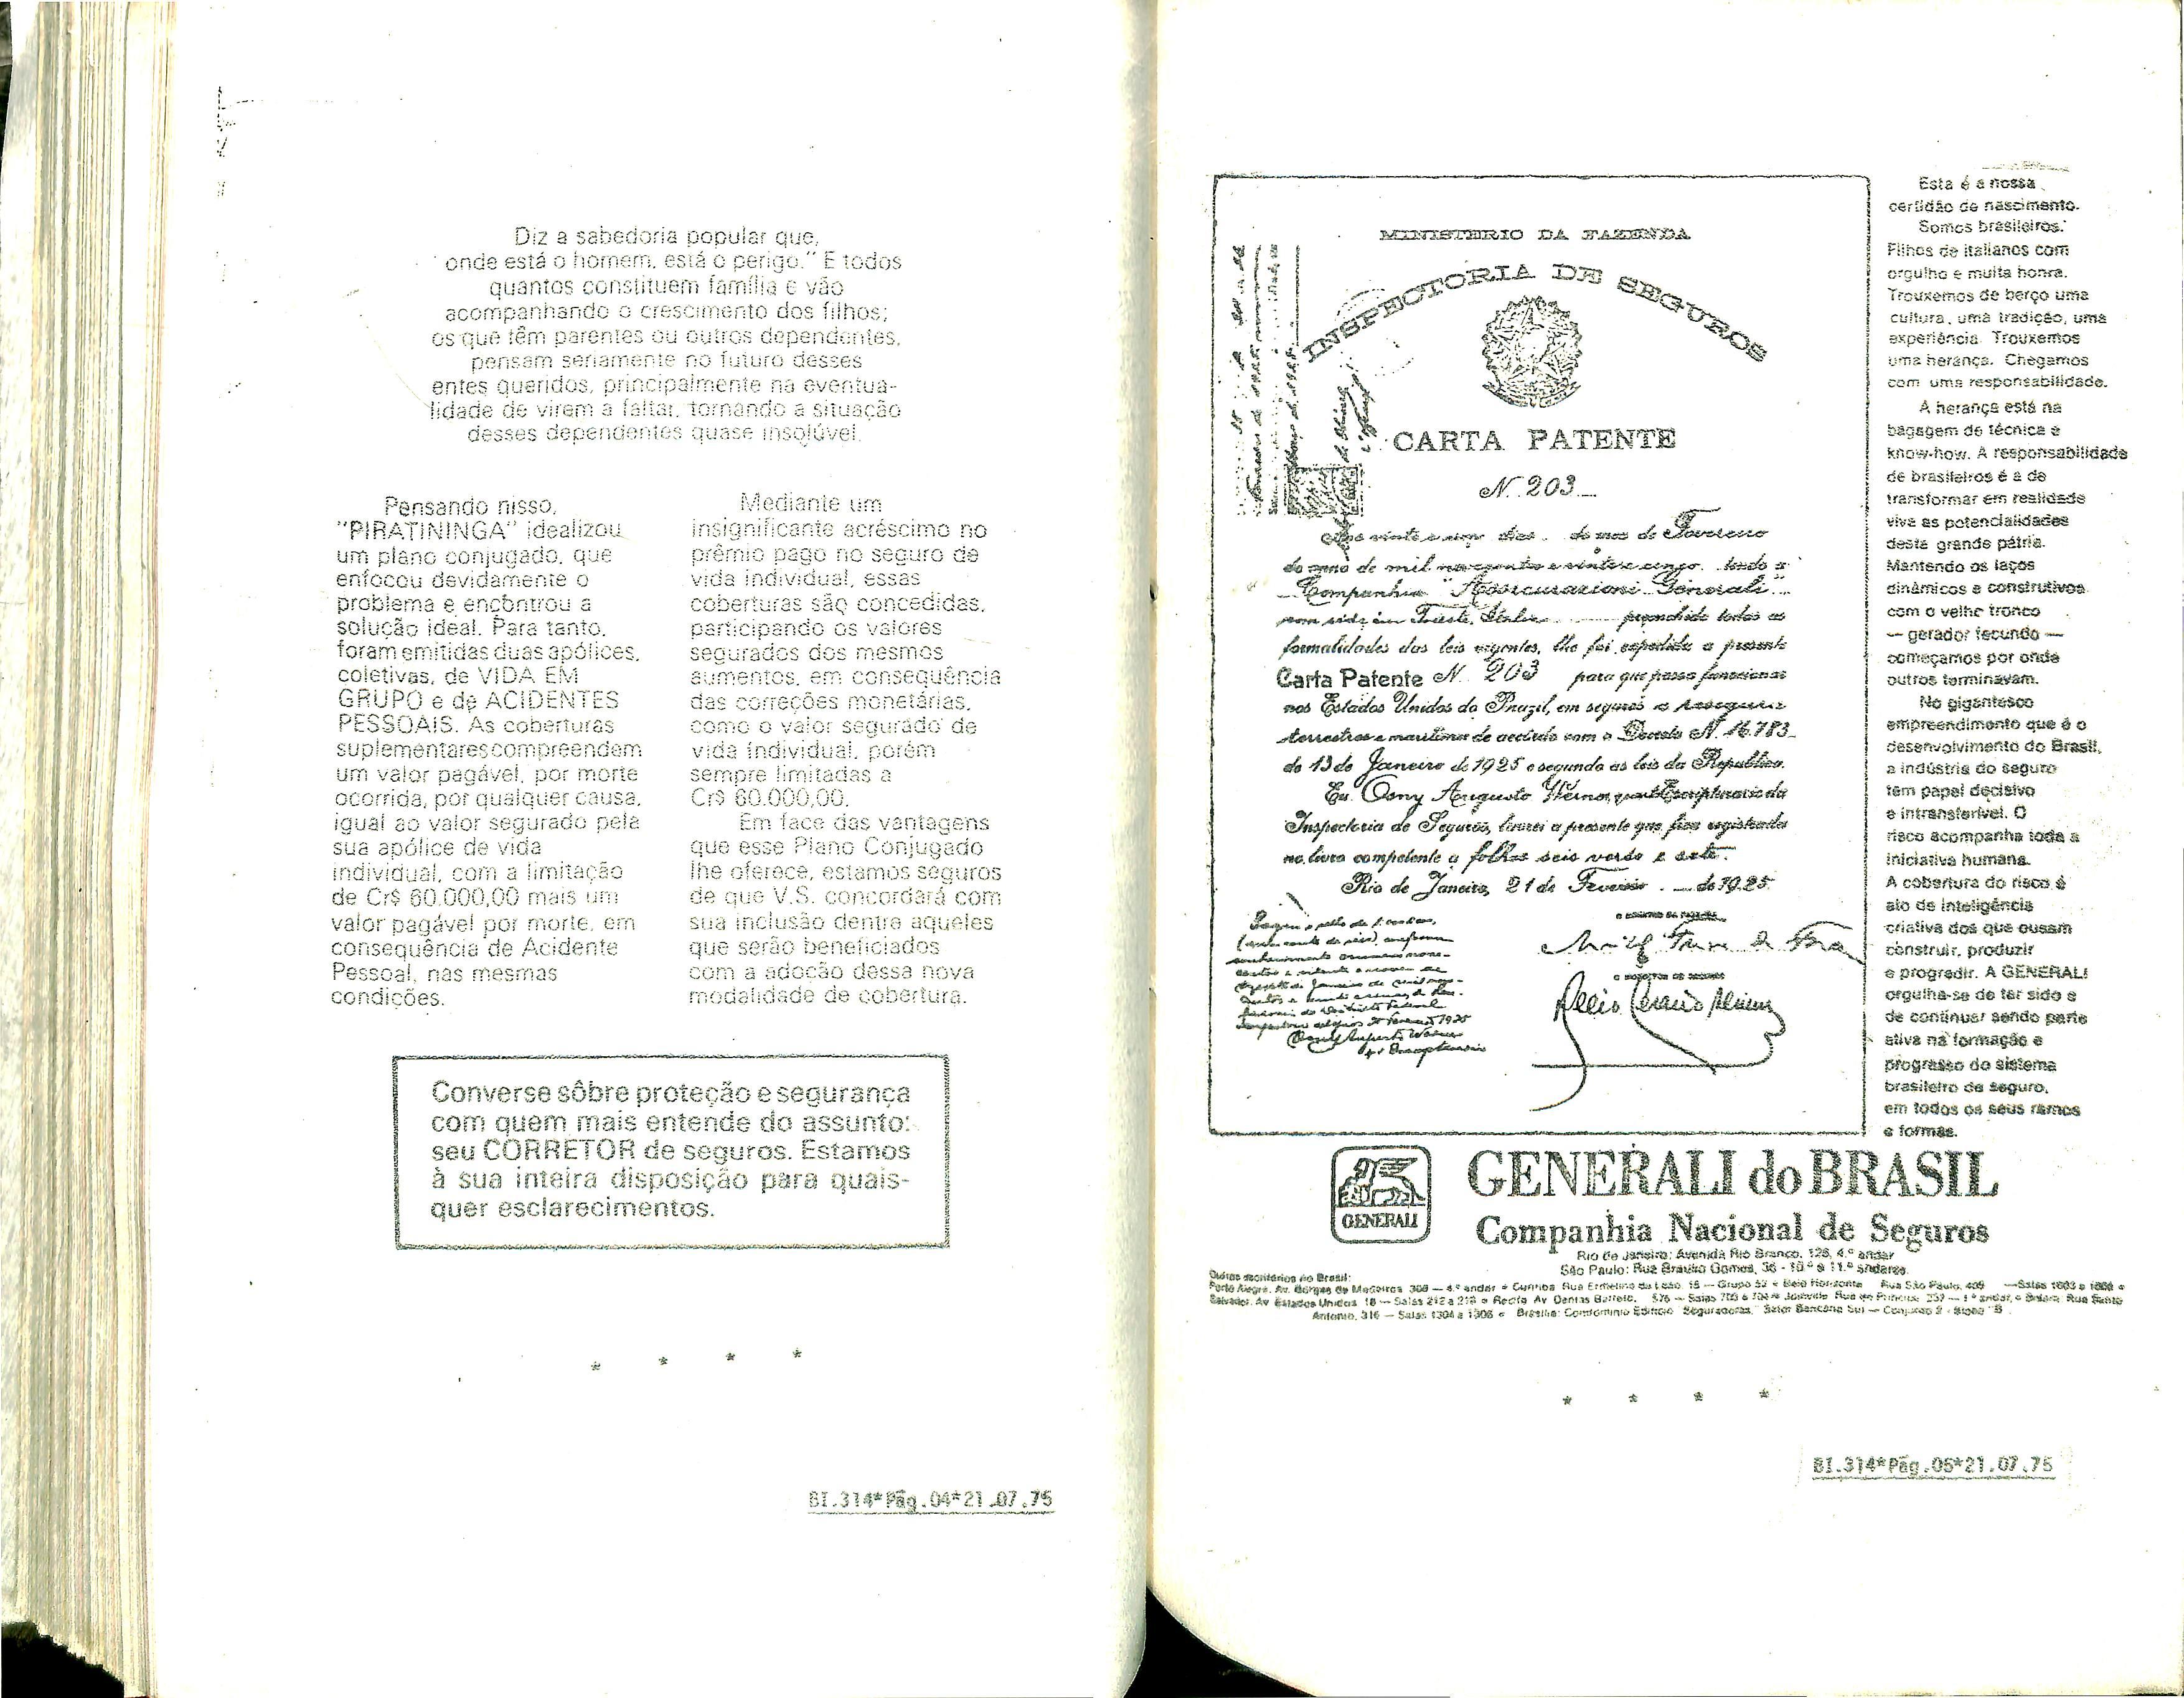 Diz a sabedoria popular que,
onde está o homem, está o perigo." E todos
quantos constituem família e vão
acompanhando o crescimento dos filhos;
os que têm parentes ou outros dependentes,
pensam seriamente no futuro desses
entes queridos, principalmente na eventua-
lidade de virem a faltar, tornando a situação
desses dependentes quase insolúvel.
Pensando nisso,
"PIRATININGA" idealizou
um plano conjugado, que
enfocou devidamente o
problema e encontrou a
solução ideal. Para tanto,
foram emitidas duas apólices,
coletivas, de VIDA EM
GRUPO e de ACIDENTES
PESSOAIS. As coberturas
suplementares compreendem
um valor pagável, por morte
ocorrida, por qualquer causa,
igual ao valor segurado pela
sua apólice de vida
individual, com a limitação
de Cr$ 60.000,00 mais um
valor pagável por morte, em
consequência de Acidente
Pessoal, nas mesmas
condições.
Mediante um
insignificante acréscimo no
prêmio pago no seguro de
vida individual, essas
coberturas são concedidas,
participando os valores
segurados dos mesmos
aumentos, em consequência
das correções monetárias,
como o valor segurado de
vida individual, porém
sempre limitadas a
Cr$ 60.000,00.
Em face das vantagens
que esse Plano Conjugado
lhe oferece, estamos seguros
de que V.S. concordará com
sua inclusão dentre aqueles
que serão beneficiados
com a adoção dessa nova
modalidade de cobertura.
Converse sôbre proteção e segurança
com quem mais entende do assunto:
seu CORRETOR de seguros. Estamos
à sua inteira disposição para quais-
quer esclarecimentos.
* * * *
BI.314*Pág.04*21.07.75
MINISTERIO DA FAZENDA
INSPECTORIA DE SEGUROS
CARTA PATENTE
N. 203
Aos vinte e um dias do mez de Fevereiro
do anno de mil novecentos e vinte e cinco, tendo a
Companhia "Assicurazioni Generali"
com séde em Trieste, Italia preenchido todas as
formalidades das leis vigentes, lhe foi expedida a presente
Carta Patente N. 203 para que possa funccionar
nos Estados Unidos do Brazil, em seguros e reseguros
terrestres e maritimos de accôrdo com o Decreto N. 16.783
de 13 de Janeiro de 1925 e segundo as leis da Republica.
Eu, Oony Augusto Werna, Escripturario da
Inspectoria de Seguros, lavrei a presente que fica registrada
no livro competente a folhas seis verso e sete.
Rio de Janeiro, 21 de Fevereiro de 1925.
Esta é a nossa
certidão de nascimento.
Somos brasileiros.
Filhos de italianos com
orgulho e muita honra.
Trouxemos de berço uma
cultura, uma tradição, uma
experiência. Trouxemos
uma herança. Chegamos
com uma responsabilidade.
A herança está na
bagagem de técnica e
know-how. A responsabilidade
de brasileiros é a de
transformar em realidade
viva as potencialidades
desta grande pátria.
Mantendo os laços
dinâmicos e construtivos
com o velho tronco
— gerador fecundo —
começamos por onde
outros terminavam.
No gigantesco
empreendimento que é o
desenvolvimento do Brasil,
a indústria do seguro
tem papel decisivo
e intransferível. O
risco acompanha toda a
iniciativa humana.
A cobertura do risco é
ato de inteligência
criativa dos que ousam
construir, produzir
e progredir. A GENERALI
orgulha-se de ter sido e
de continuar sendo parte
ativa na formação e
progresso do sistema
brasileiro de seguro,
em todos os seus ramos
e formas.
GENERALI
GENERALI do BRASIL
Companhia Nacional de Seguros
Rio de Janeiro: Avenida Rio Branco, 128, 4.º andar
São Paulo: Rua Bráulio Gomes, 36 - 10.º e 11.º andares
Outros escritórios no Brasil:
Porto Alegre, Av. Borges de Medeiros, 308 — 4.º andar • Curitiba Rua Ermelino de Leão, 15 — Grupo 52 • Belo Horizonte Rua São Paulo, 409 — Salas 1603 e 1606 •
Salvador, Av. Estados Unidos, 18 — Salas 212 a 218 • Recife Av. Dantas Barreto, 576 — Salas 703 e 704 • Joinville Rua do Príncipe, 257 — 1.º andar, • Belém, Rua Santo
Antonio, 316 — Salas 1304 a 1306 • Brasília: Condomínio Edifício Seguradoras, Setor Bancário Sul — Conjunto 2 - Bloco "B".
* * * *
BI.314*Pág.05*21.07.75